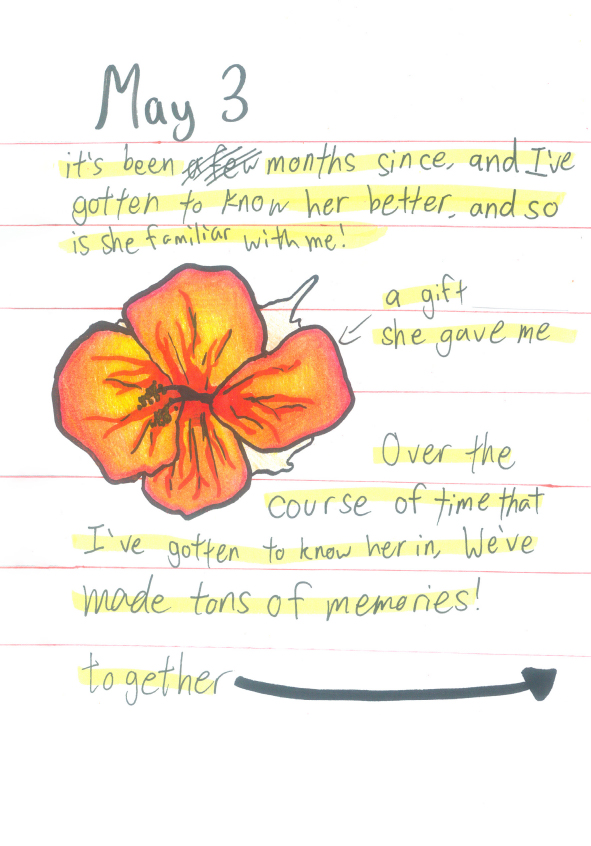 May 3
it's been a few months since, and I've
gotten to know her better, and so
is she familiar with me!
a gift
she gave me
Over the
course of time that
I've gotten to know her in, We've
made tons of memories!
together